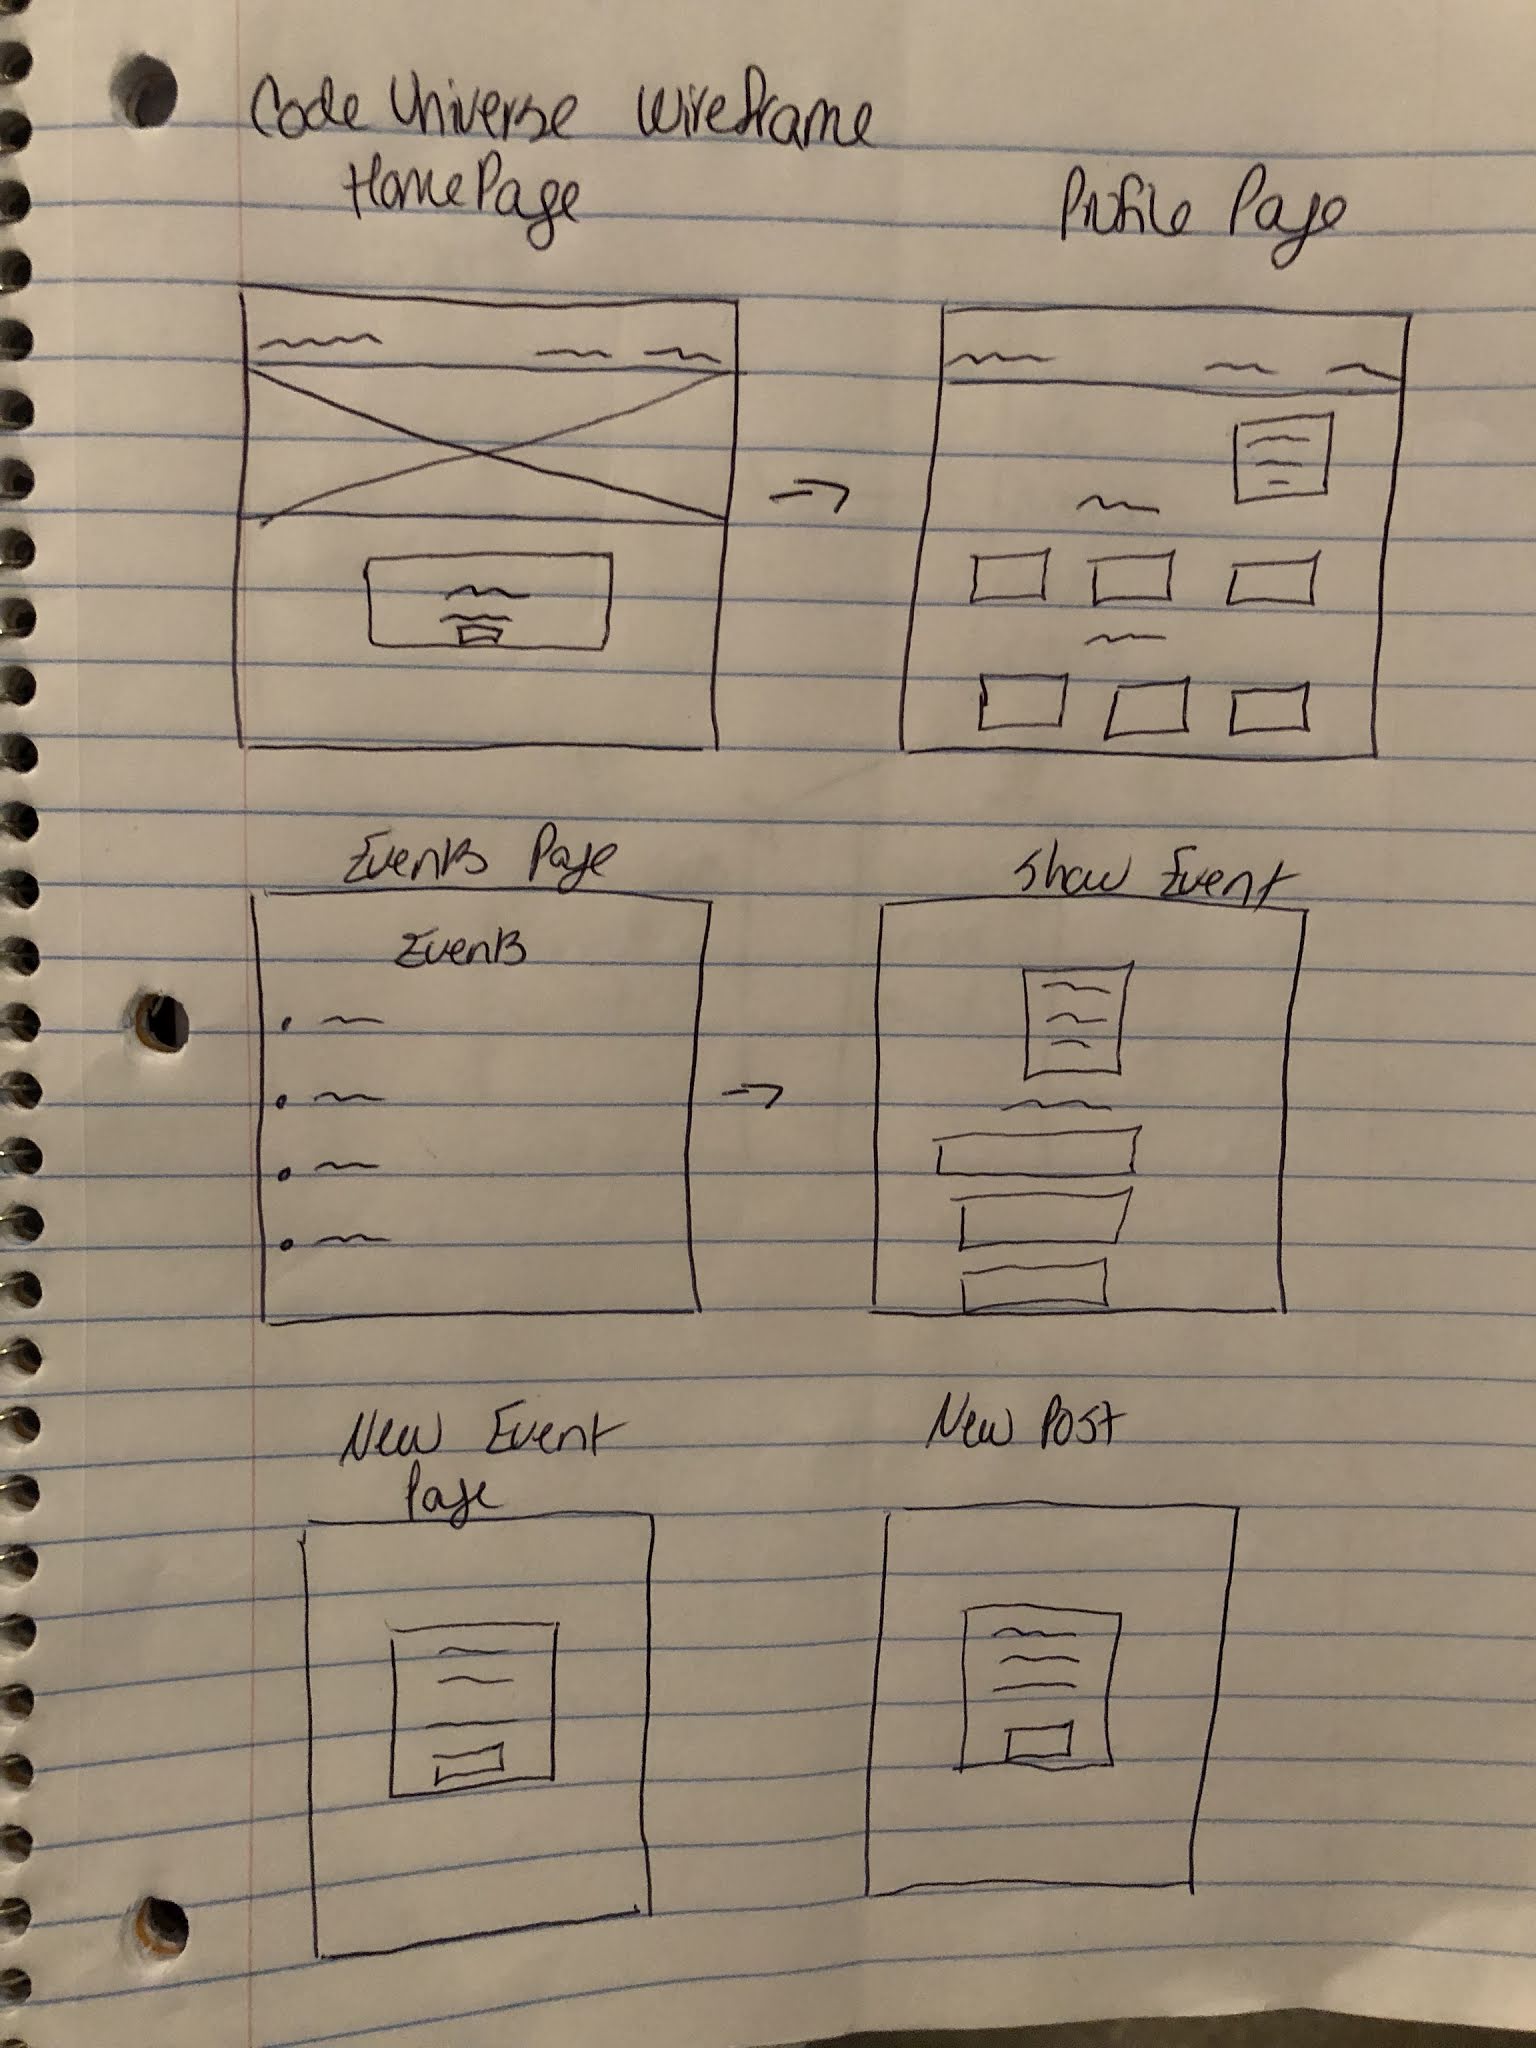 Code Universe Wireframe
HomePage
Profile Page
Events Page
Show Event
Events
New Event
Page
New Post